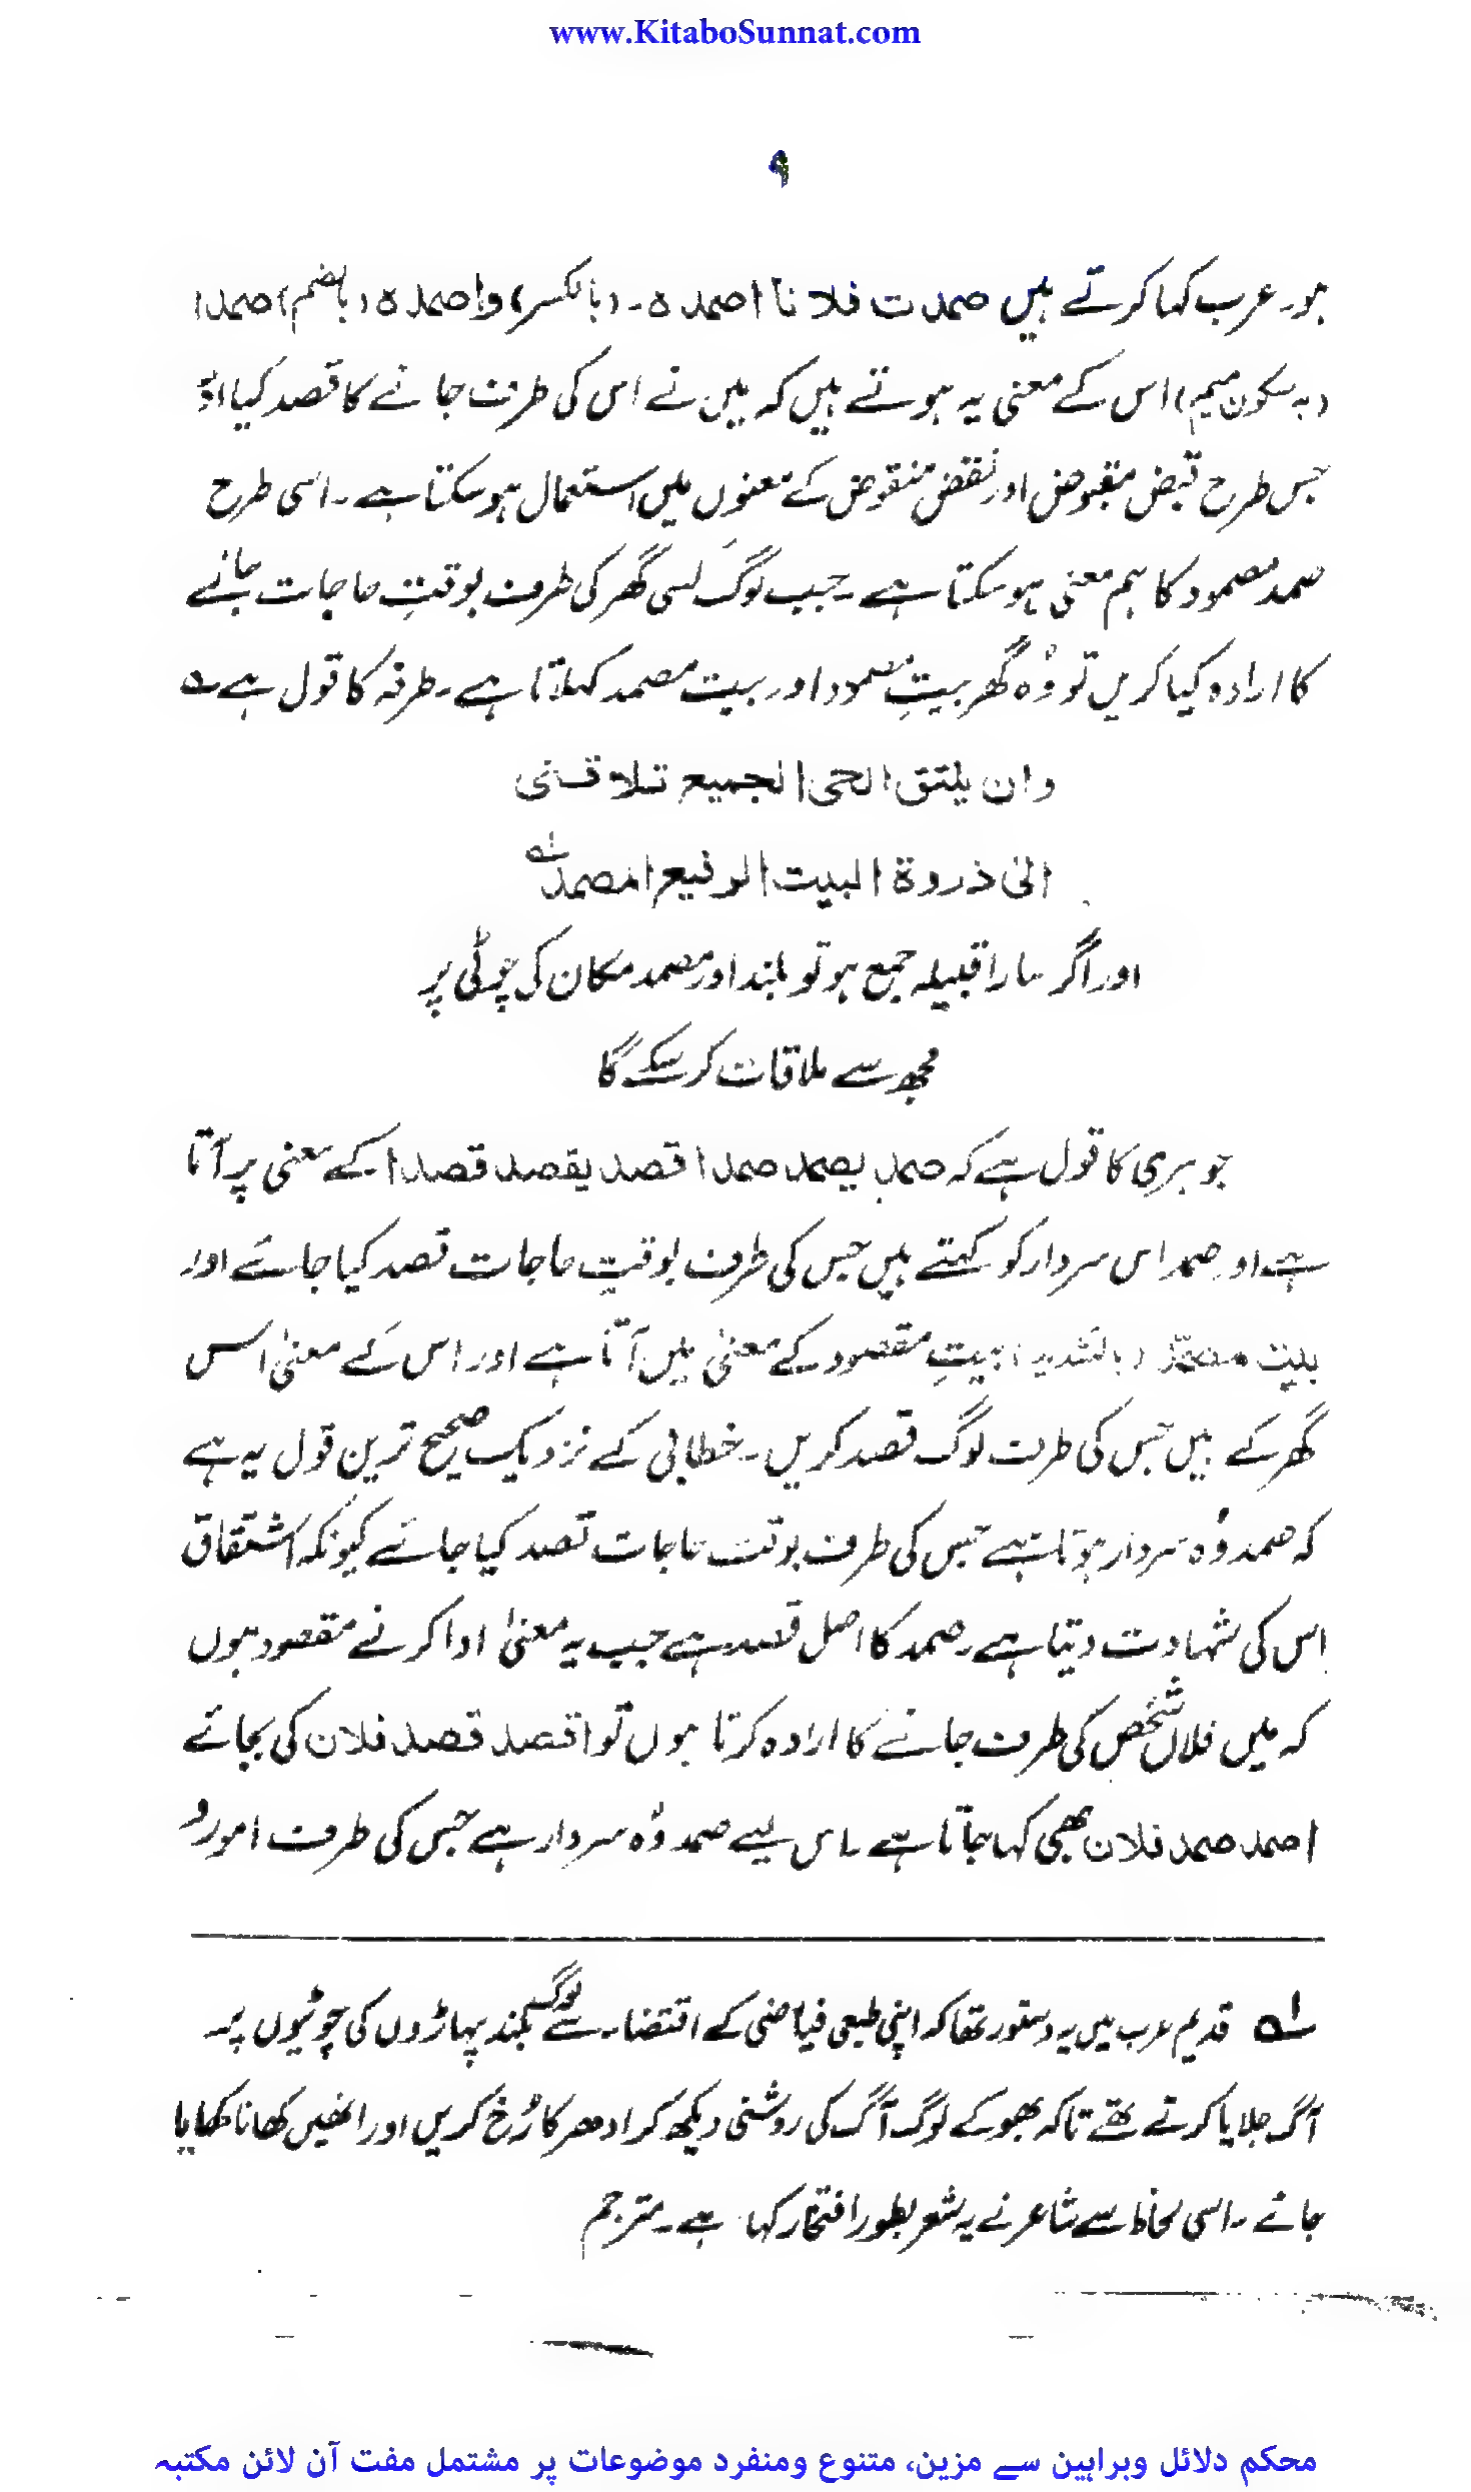 www.KitaboSunnat.com
۹
ہو۔ عرب کہا کرتے ہیں صمدت فلانا اصمدہ۔ (بالکسر) واصمدہ (بالضم) صمدا
(بہ سکون میم) اس کے معنی یہ ہوتے ہیں کہ میں نے اس کی طرف جانے کا قصد کیا اور
جس طرح قبض مقبوض اور نقض منقوض کے معنوں میں استعمال ہو سکتا ہے۔ اسی طرح
صمد مصمود کا ہم معنی ہو سکتا ہے۔ جب لوگ کسی گھر کی طرف بوقتِ حاجات جانے
کا ارادہ کیا کریں تو وُہ گھر بیتِ مصمود اور بیت مصمد کہلاتا ہے۔ طرفہ کا قول ہے ؎
وان یلتق الحی الجمیع تلاقنی
الی ذروة البیت الرفیع المصمد لہ
اور اگر سارا قبیلہ جمع ہو تو بلند اور مصمد مکان کی چوٹی پر
مجھ سے ملاقات کر سکے گا
جوہری کا قول ہے کہ صمد یصمد صمدا قصد یقصد قصدا کے معنی پر آتا
ہے اور صمد اس سردار کو کہتے ہیں جس کی طرف بوقتِ حاجات قصد کیا جائے اور
بیت مصمّد (بالتشدید) بیتِ مقصود کے معنیٰ میں آتا ہے اور اس کے معنیٰ اس
گھر کے ہیں جس کی طرف لوگ قصد کریں۔ خطابی کے نزدیک صحیح ترین قول یہ ہے
کہ صمد وُہ سردار ہوتا ہے جس کی طرف بوقت حاجات قصد کیا جائے کیونکہ اشتقاق
اس کی شہادت دیتا ہے۔ صمد کا اصل قصد ہے جب یہ معنیٰ ادا کرنے مقصود ہوں
کہ میں فلاں شخص کی طرف جانے کا ارادہ کرتا ہوں تو اقصد قصد فلان کی بجائے
اصمد صمد فلان بھی کہا جاتا ہے۔ اس لیے صمد وُہ سردار ہے جس کی طرف امور و
لہ قدیم عرب میں یہ دستور تھا کہ اپنی طبعی فیاضی کے اقتضاء سے لوگ بلند پہاڑوں کی چوٹیوں پر
آگ جلایا کرتے تھے تاکہ بھوکے لوگ آگ کی روشنی دیکھ کر ادھر کا رُخ کریں اور انھیں کھانا کھلایا
جائے۔ اسی لحاظ سے شاعر نے یہ شعر بطور افتخار کہا ہے۔ مترجم
محکم دلائل وبراہین سے مزین، متنوع ومنفرد موضوعات پر مشتمل مفت آن لائن مکتبہ